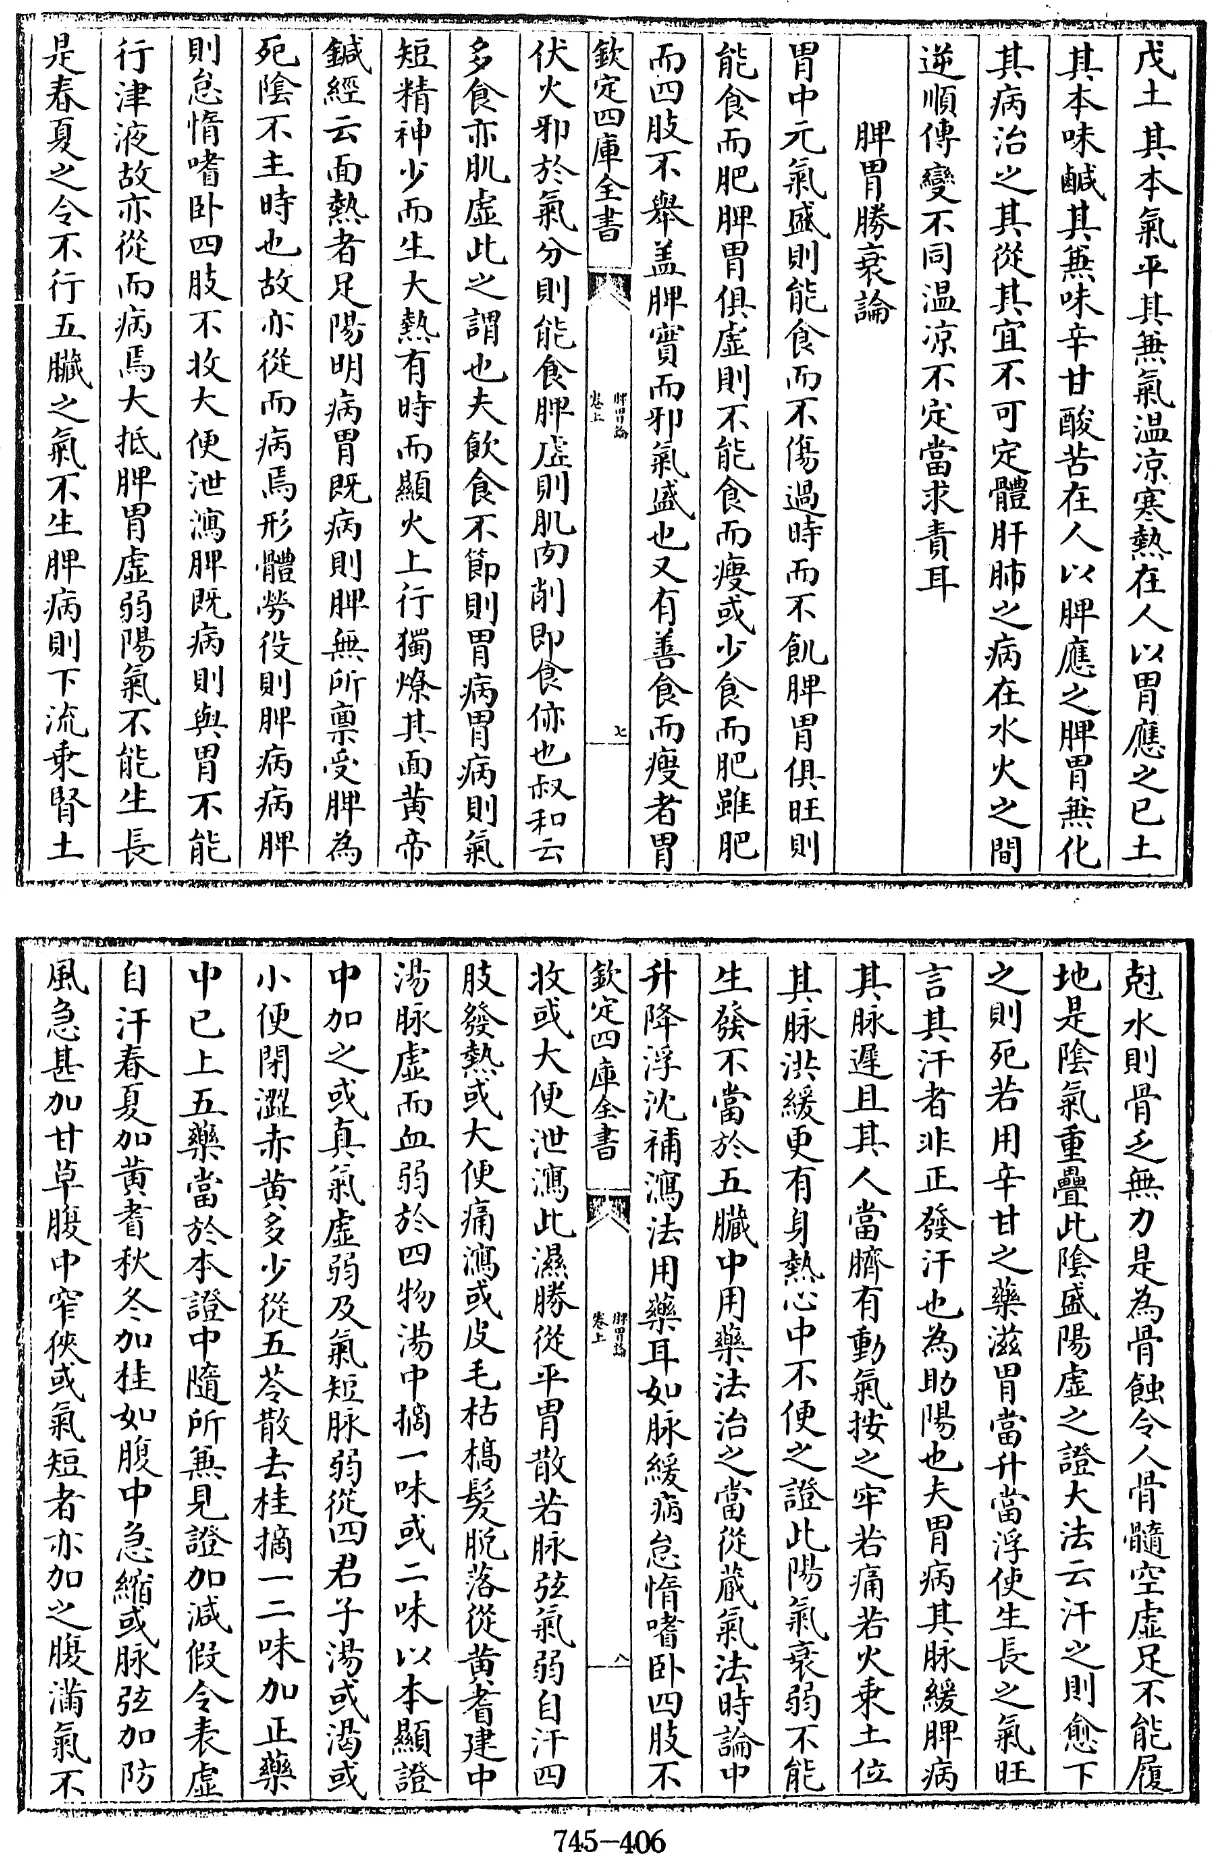 戊土其本氣平其兼氣温凉寒熱在人以胃應之已土
其本味鹹其兼味辛甘酸苦在人以脾應之脾胃兼化
其病治之其從其宜不可定體肝肺之病在水火之間
逆順傳變不同温凉不定當求責耳
脾胃勝衰論
胃中元氣盛則能食而不傷過時而不飢脾胃俱旺則
能食而肥脾胃俱虚則不能食而瘦或少食而肥雖肥
而四肢不舉盖脾實而邪氣盛也又有善食而瘦者胃
欽定四庫全書
脾胃論
卷上
七
伏火邪於氣分則能食脾虚則肌肉削即食㑊也叔和云
多食亦肌虚此之謂也夫飲食不節則胃病胃病則氣
短精神少而生大熱有時而顯火上行獨燎其面黄帝
鍼經云面熱者足陽明病胃既病則脾無所禀受脾為
死陰不主時也故亦從而病焉形體勞役則脾病病脾
則怠惰嗜卧四肢不收大便泄瀉脾既病則與胃不能
行津液故亦從而病焉大抵脾胃虚弱陽氣不能生長
是春夏之令不行五臟之氣不生脾病則下流乘腎土
尅水則骨乏無力是為骨蝕令人骨髓空虚足不能履
地是陰氣重疊此陰盛陽虚之證大法云汗之則愈下
之則死若用辛甘之藥滋胃當升當浮使生長之氣旺
言其汗者非正發汗也為助陽也夫胃病其脉緩脾病
其脉遲且其人當臍有動氣按之牢若痛若火乘土位
其脉洪緩更有身熱心中不便之證此陽氣衰弱不能
生發不當於五臟中用藥法治之當從藏氣法時論中
升降浮沈補瀉法用藥耳如脉緩病怠惰嗜卧四肢不
欽定四庫全書
脾胃論
卷上
八
收或大便泄瀉此濕勝從平胃散若脉弦氣弱自汗四
肢發熱或大便痛瀉或皮毛枯槁髮脫落從黄耆建中
湯脉虚而血弱於四物湯中摘一味或二味以本顯證
中加之或真氣虚弱及氣短脉弱從四君子湯或渴或
小便閉澀赤黄多少從五苓散去桂摘一二味加正藥
中已上五藥當於本證中隨所兼見證加減假令表虚
自汗春夏加黄耆秋冬加桂如腹中急縮或脉弦加防
風急甚加甘草腹中窄狹或氣短者亦加之腹滿氣不
745-406